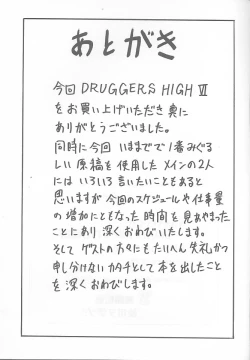 あとがき
今回 DRUGGERS HIGH Ⅵ
をお買い上げいただき 真に
ありがとうございました。
同時に今回 いままでで1番みぐる
しい 原稿を使用した メインの2人
には いろいろ言いたいこともあると
思いますが 今回のスケジュールや仕事量
の増加にともなった 時間を見あやまった
ことにあり 深くおわびいたします。
そして ゲストの方々にも たいへん失礼かつ
申し分けない カタチとして 本を出したこと
を 深く おわびします。